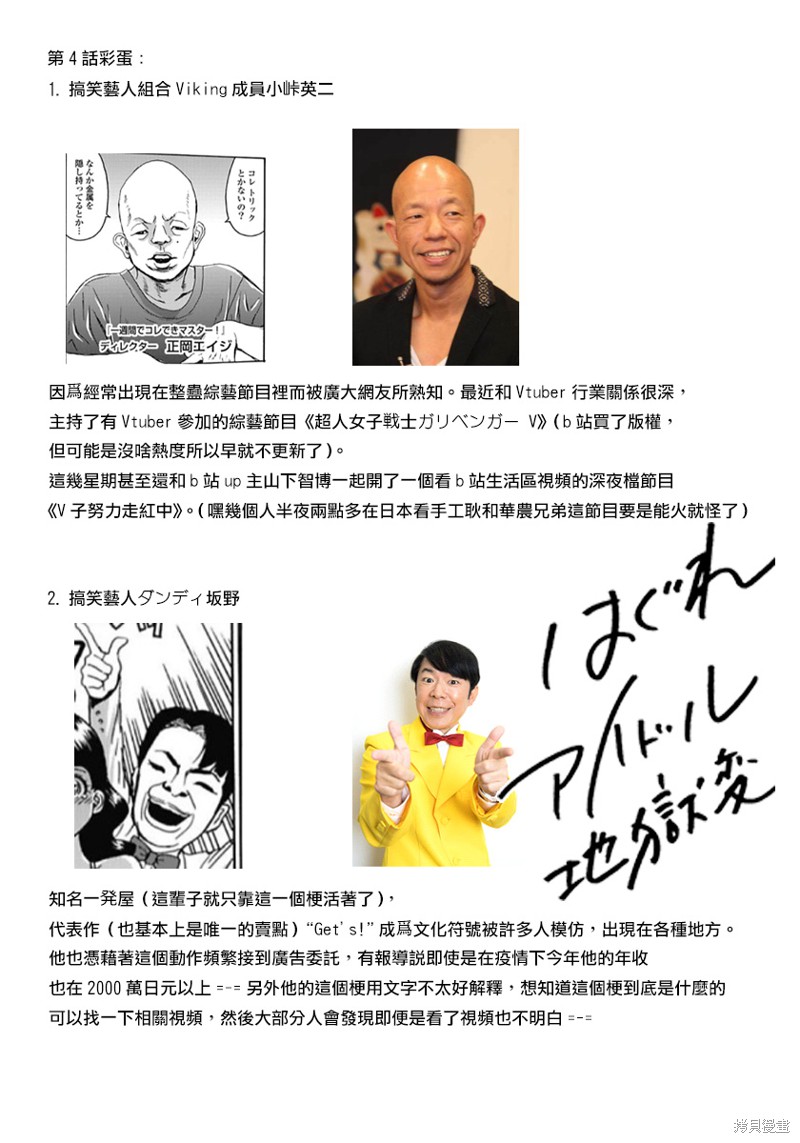 第4話彩蛋：
1. 搞笑藝人組合Viking成員小峠英二
コレトリック
とかないの？
なんか金属を
隠し持ってるとか…
「一週間でコレできマスター！」
ディレクター 正岡エイジ
因爲經常出現在整蠱綜藝節目裡而被廣大網友所熟知。最近和Vtuber行業關係很深，
主持了有Vtuber參加的綜藝節目《超人女子戦士ガリベンガー V》（b站買了版權，
但可能是沒啥熱度所以早就不更新了）。
這幾星期甚至還和b站up主山下智博一起開了一個看b站生活區視頻的深夜檔節目
《V子努力走紅中》。（嘿幾個人半夜兩點多在日本看手工耿和華農兄弟這節目要是能火就怪了）
2. 搞笑藝人ダンディ坂野
はぐれ
アイドル
地獄変
知名一発屋（這輩子就只靠這一個梗活著了），
代表作（也基本上是唯一的賣點）“Get's!”成爲文化符號被許多人模仿，出現在各種地方。
他也憑藉著這個動作頻繁接到廣告委託，有報導説即使是在疫情下今年他的年收
也在2000萬日元以上 =-= 另外他的這個梗用文字不太好解釋，想知道這個梗到底是什麼的
可以找一下相關視頻，然後大部分人會發現即便是看了視頻也不明白 =-=
拷貝漫畫